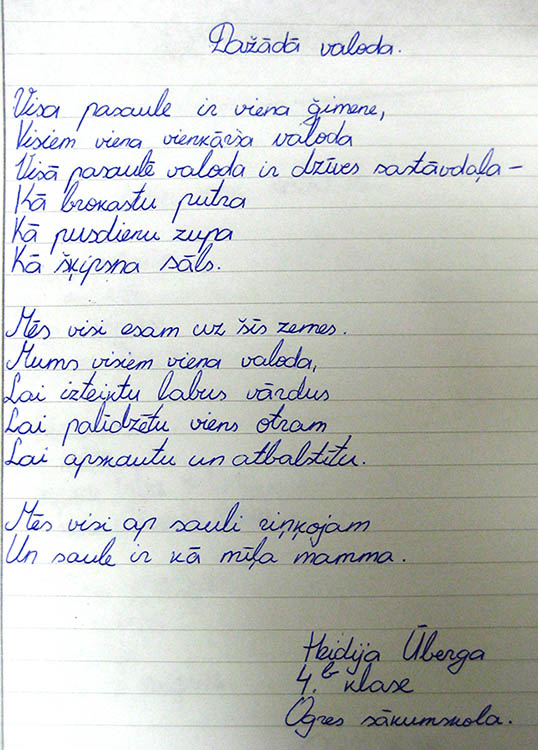 Dažādā valoda.
Visa pasaule ir viena ģimene,
Visiem viena vienkārša valoda
Visā pasaulē valoda ir dzīves sastāvdaļa –
Kā brokastu putra
Kā pusdienu zupa
Kā šķipsna sāls.
Mēs visi esam uz šīs zemes.
Mums visiem viena valoda,
Lai izteiktu labus vārdus
Lai palīdzētu viens otram
Lai apskautu un atbalstītu.
Mēs visi ap sauli riņķojam
Un saule ir kā mīļa mamma.
Heidija Ūberga
4.b klase
Ogres sākumskola.